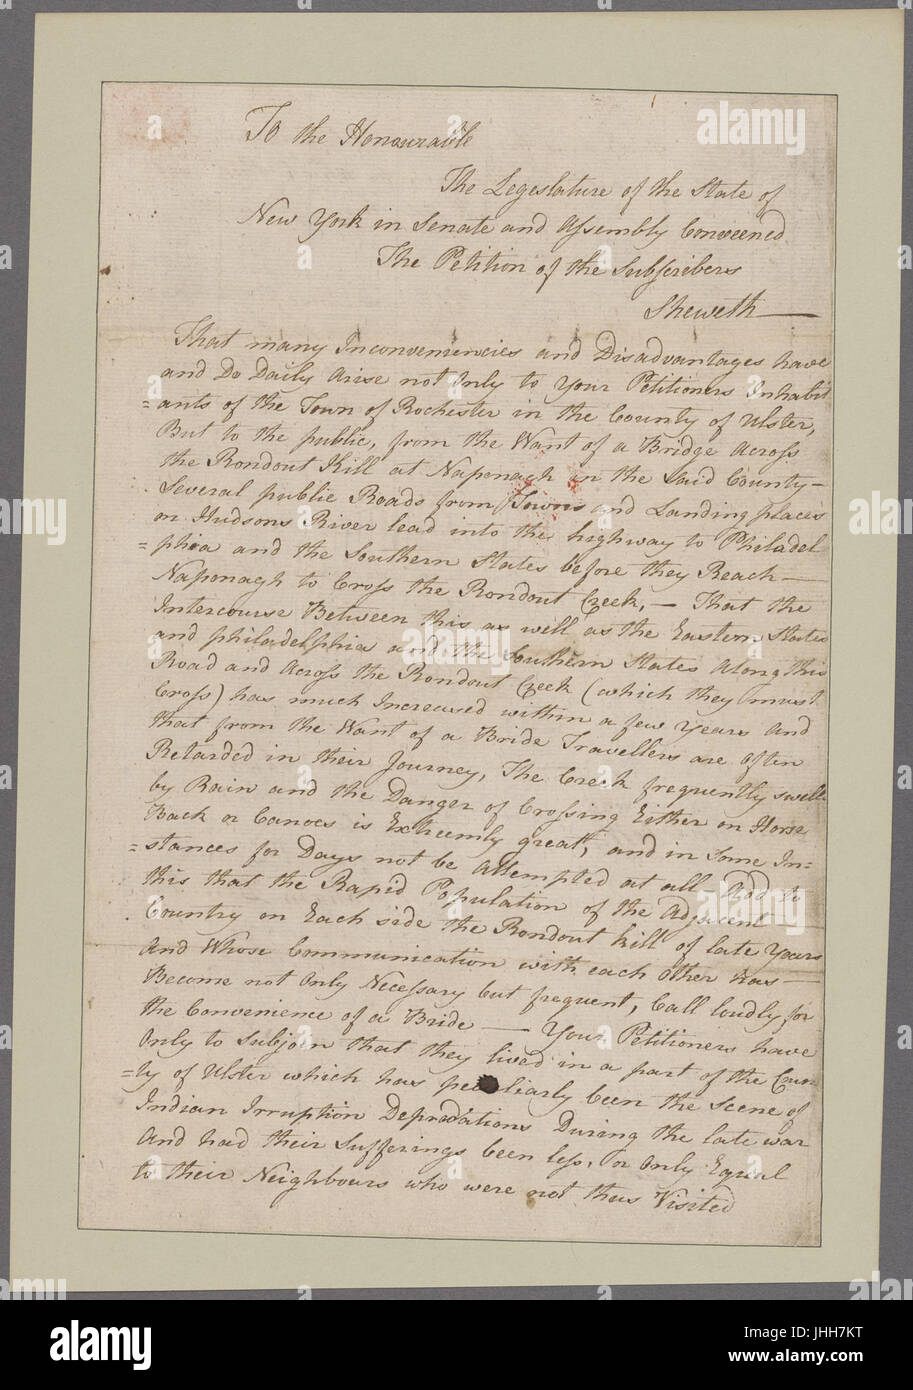 To the Honourable
The Legeslature of the State of
New York in Senate and Assembly Conveened
The Petition of the Subscribers
Sheweth —
That many Inconveniencies and Disadvantages have
and Do Daily Arise not Only to Your Petitioners Inhabit
=ants of the Town of Rochester in the County of Ulster,
But to the public, from the Want of a Bridge Across
the Rondout Kill at Naponagh in the Said County —
Several public Roads from Towns and Landing places
on Hudsons River lead into the highway to Philadel
=phia and the Southern States before they Reach —
Naponagh to Cross the Rondout Creek, — That the
Intercourse Between this as well as the Eastern States
and philadelphia and the Southern States Along this
Road and Across the Rondout Creek (which they must
Cross) has much Increased within a few years and
that from the Want of a Bride Travellers are often
Retarded in their Journey, The Creek frequently swell
by Rain and the Danger of Crossing Either on Horse
Back or Canoes is Extreemly great, and in Some In=
=stances for Days not be Attempted at all Add to
this that the Rapid Population of the Adjacent
Country on Each side the Rondout kill of late Years
And Whose Communication with each Other has —
Become not Only Necessary but frequent, Call loudly for
the Convenience of a Bride — Your Petitioners have
Only to Subjoin that they lived in a part of the Coun
=ty of Ulster which has peculiarly been the Scene of
Indian Irruption Depredations During the late war
And had their Sufferings been less, or Only Equal
to their Neighbours who were not thus Visited
alamy
a
alamy stock photo
JHH7KT
www.alamy.com